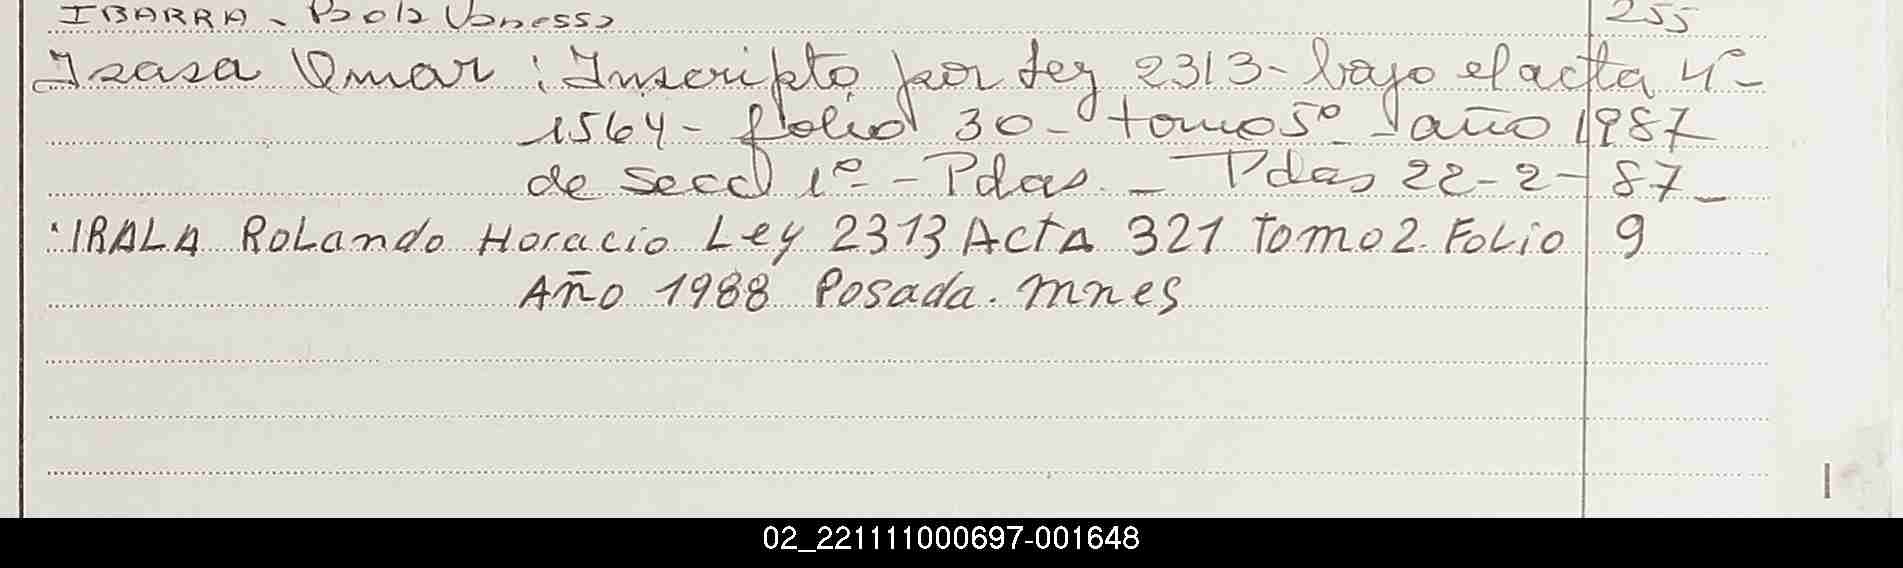 IBARRA - Paola Vanessa 255
Isasa Omar : Inscripto por Ley 2313 - bajo el acta nº -
1564 - folio 30 - tomo 5º - año 1987
de secc 1º - Pdas. - Pdas 22-2-87_
IRALA Rolando Horacio Ley 2313 Acta 321 Tomo 2. Folio 9
Año 1988 Posada. mnes
02_221111000697-001648